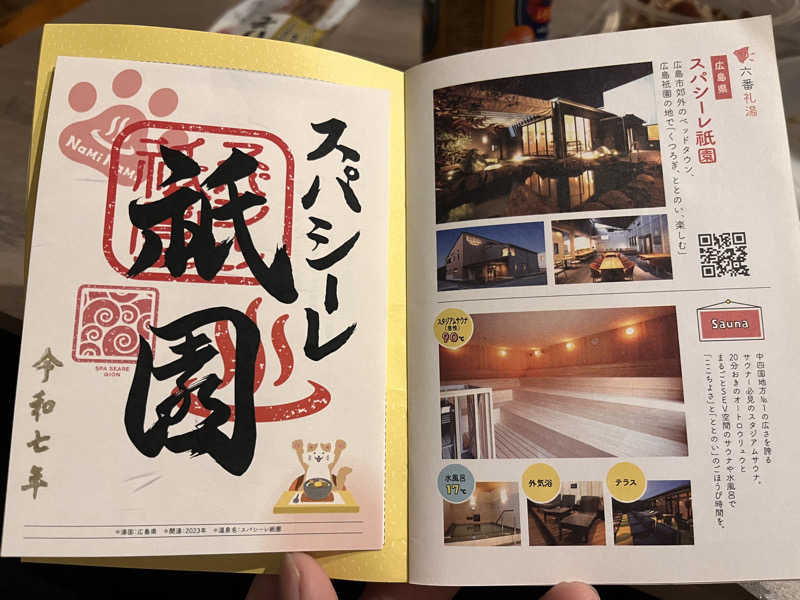 スパシーレ
祇園
NaMi NaMi
SPA SEARE
GION
令和七年
*湯国:広島県 *開湯:2023年 *温泉名:スパシーレ祇園
六番礼湯
広島県
スパシーレ祇園
広島市郊外のベッドタウン、
広島祇園の地で「くつろぎ、ととのい、楽しむ」
Sauna
中四国地方No.1の広さを誇る
サウナー必見のスタジアムサウナ。
20分おきのオートロウリュウと
まるごとSEV空間のサウナや水風呂で
「ここちよさ」と「ととのい」のごほうび時間を。
スタジアムサウナ
90℃
水風呂
17℃
外気浴
テラス